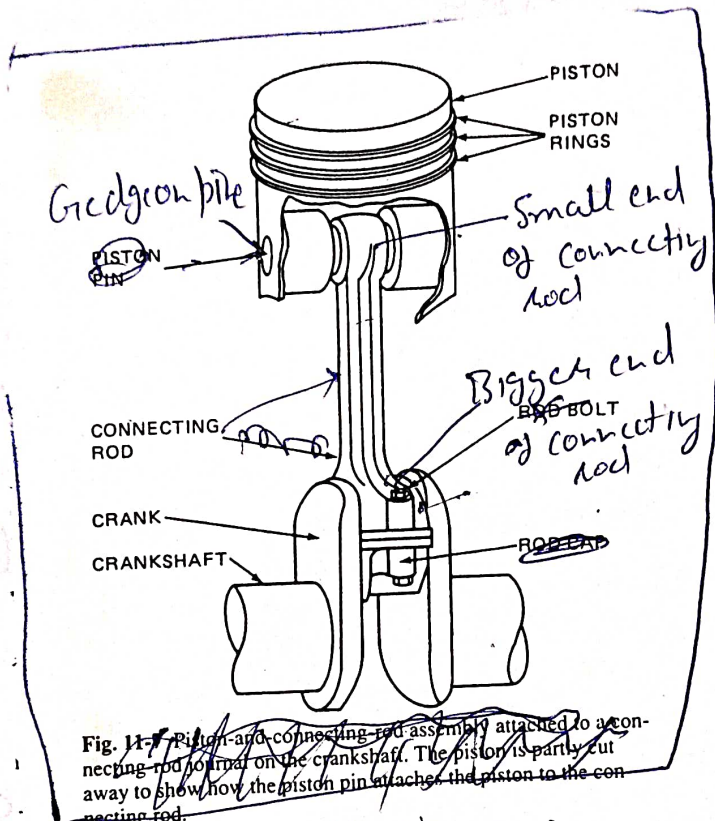 PISTON
PISTON
RINGS
Gedgeon pine
Small end
of connecting
rod
PISTON
PIN
Bigger end
ROD BOLT
of connecting
rod
CONNECTING
ROD
CRANK
ROD CAP
CRANKSHAFT
Fig. 11- Piston-and-connecting-rod assembly attached to a con-
necting-rod journal on the crankshaft. The piston is partly cut
away to show how the piston pin attaches the piston to the con
necting rod.